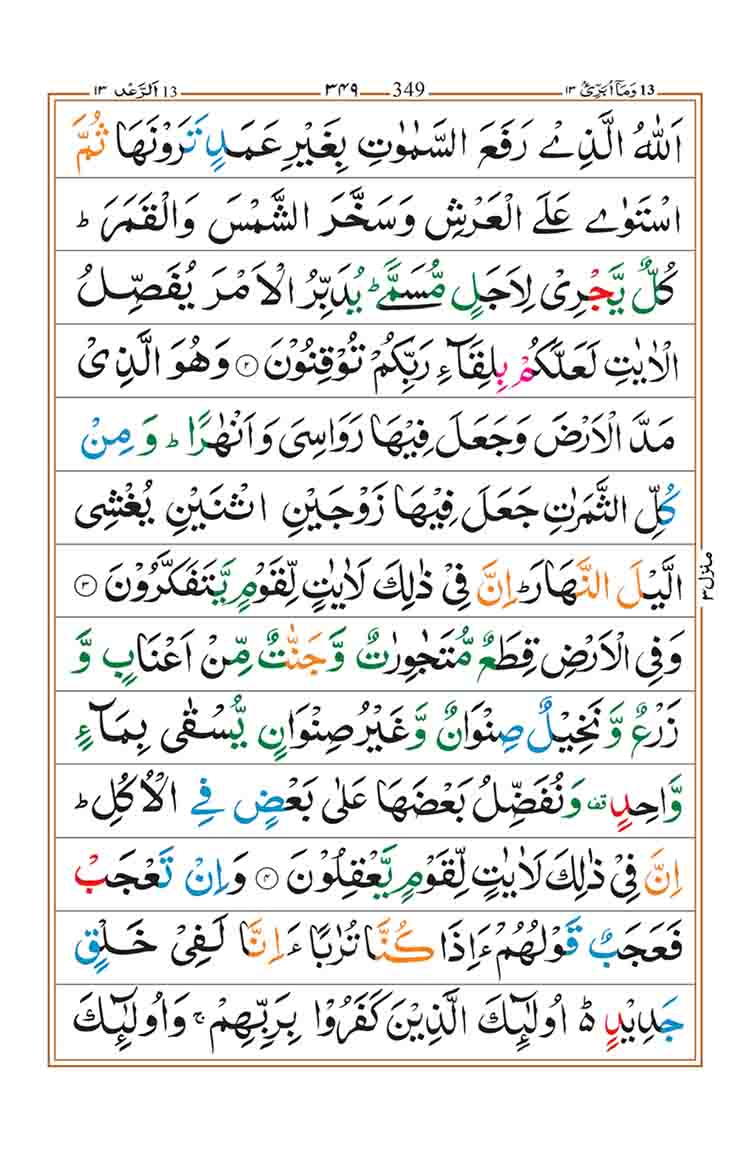 وَمَاۤ اُبَرِّئُ ١٣ 13 349 ٣٤٩ اَلرَّعْد ١٣ 13
اَللّٰهُ الَّذِیْ رَفَعَ السَّمٰوٰتِ بِغَیْرِ عَمَدٍ تَرَوْنَهَا ثُمَّ
اسْتَوٰی عَلَی الْعَرْشِ وَسَخَّرَ الشَّمْسَ وَالْقَمَرَ ؕ
كُلٌّ یَّجْرِیْ لِاَجَلٍ مُّسَمًّی ؕ یُدَبِّرُ الْاَمْرَ یُفَصِّلُ
الْاٰیٰتِ لَعَلَّكُمْ بِلِقَآءِ رَبِّكُمْ تُوْقِنُوْنَ ۟۲ وَهُوَ الَّذِیْ
مَدَّ الْاَرْضَ وَجَعَلَ فِیْهَا رَوَاسِیَ وَاَنْهٰرًا ؕ وَ مِنْ
كُلِّ الثَّمَرٰتِ جَعَلَ فِیْهَا زَوْجَیْنِ اثْنَیْنِ یُغْشِی
الَّیْلَ النَّهَارَ ؕ اِنَّ فِیْ ذٰلِكَ لَاٰیٰتٍ لِّقَوْمٍ یَّتَفَكَّرُوْنَ ۟۳
وَفِی الْاَرْضِ قِطَعٌ مُّتَجٰوِرٰتٌ وَّجَنّٰتٌ مِّنْ اَعْنَابٍ وَّ
زَرْعٌ وَّنَخِیْلٌ صِنْوَانٌ وَّغَیْرُ صِنْوَانٍ یُّسْقٰی بِمَآءٍ
وَّاحِدٍ قف وَنُفَضِّلُ بَعْضَهَا عَلٰی بَعْضٍ فِی الْاُكُلِ ؕ
اِنَّ فِیْ ذٰلِكَ لَاٰیٰتٍ لِّقَوْمٍ یَّعْقِلُوْنَ ۟۴ وَاِنْ تَعْجَبْ
فَعَجَبٌ قَوْلُهُمْ ءَاِذَا كُنَّا تُرٰبًا ءَاِنَّا لَفِیْ خَلْقٍ
جَدِیْدٍ ؕ۬ اُولٰٓئِكَ الَّذِیْنَ كَفَرُوْا بِرَبِّهِمْ ۚ وَاُولٰٓئِكَ
منزل ۳